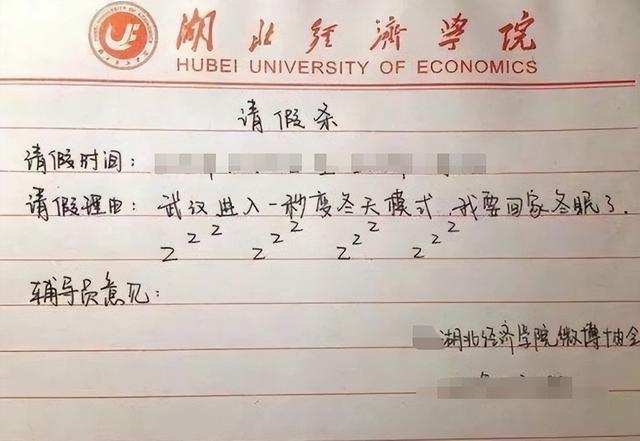 湖北经济学院
HUBEI UNIVERSITY OF ECONOMICS
请假条
请假时间：
请假理由：武汉进入一秒变冬天模式，我要回家冬眠了.
z z z z z z z z z z z z
辅导员意见：
湖北经济学院微博协会